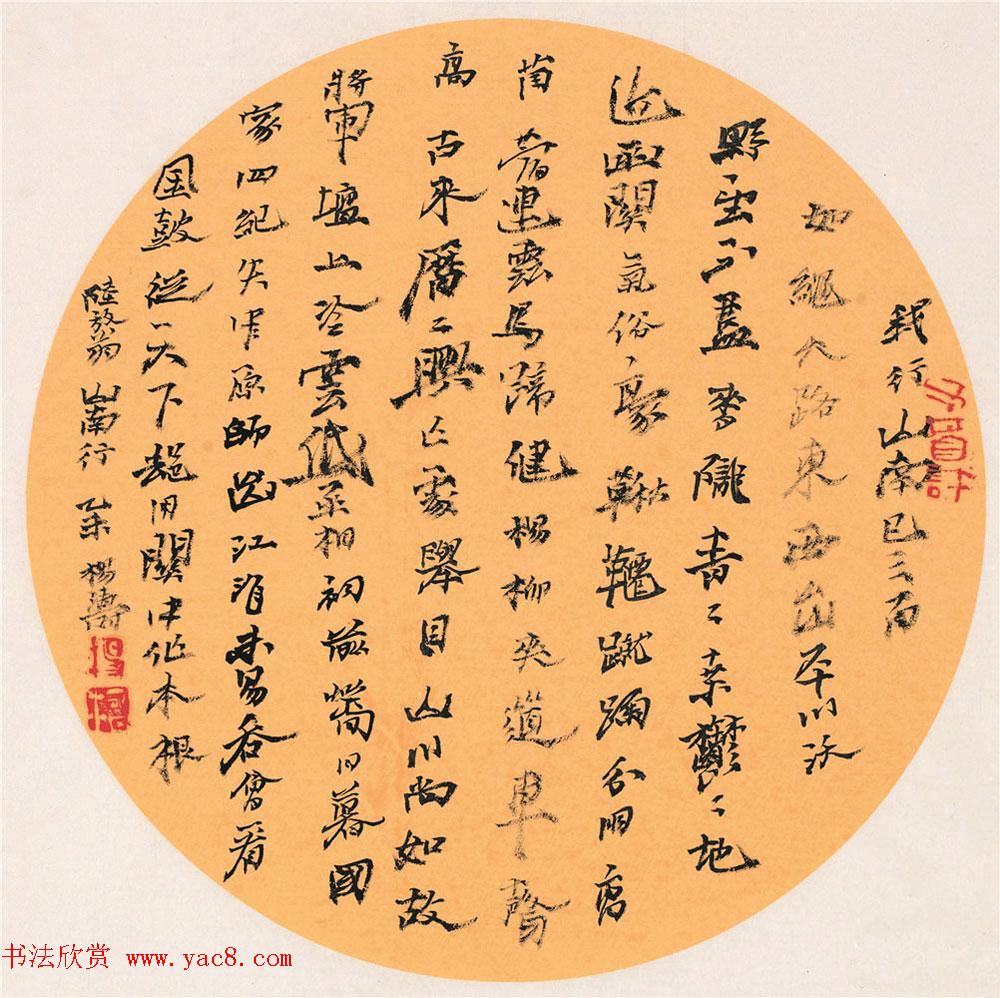 我行山南已三日
如繩大路東西出平川沃
野望不盡麥隴青〻桑鬱〻地
近函關氣俗豪鞦韆蹴踘分朋曹
苜蓿連雲馬蹄健楊柳夾道車聲
高古來歷〻興亡處舉目山川尚如故
將軍壇上冷雲低丞相祠前春日暮國
家四紀失中原師出江淮未易吞會看
金鼓從天下却用關中作本根
陸放翁山南行 乙未 楊濤
书法欣赏 www.yac8.com